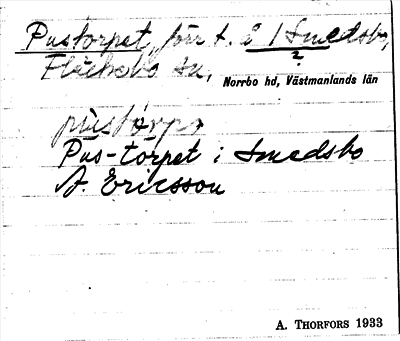 Pustorpet, förr t. å 1 Smedsbo,
2
Fläckebo sn,
Norrbo hd, Västmanlands län
pùstòrpə
Pus-torpet i Smedsbo
A. Ericsson
A. THORFORS 1933